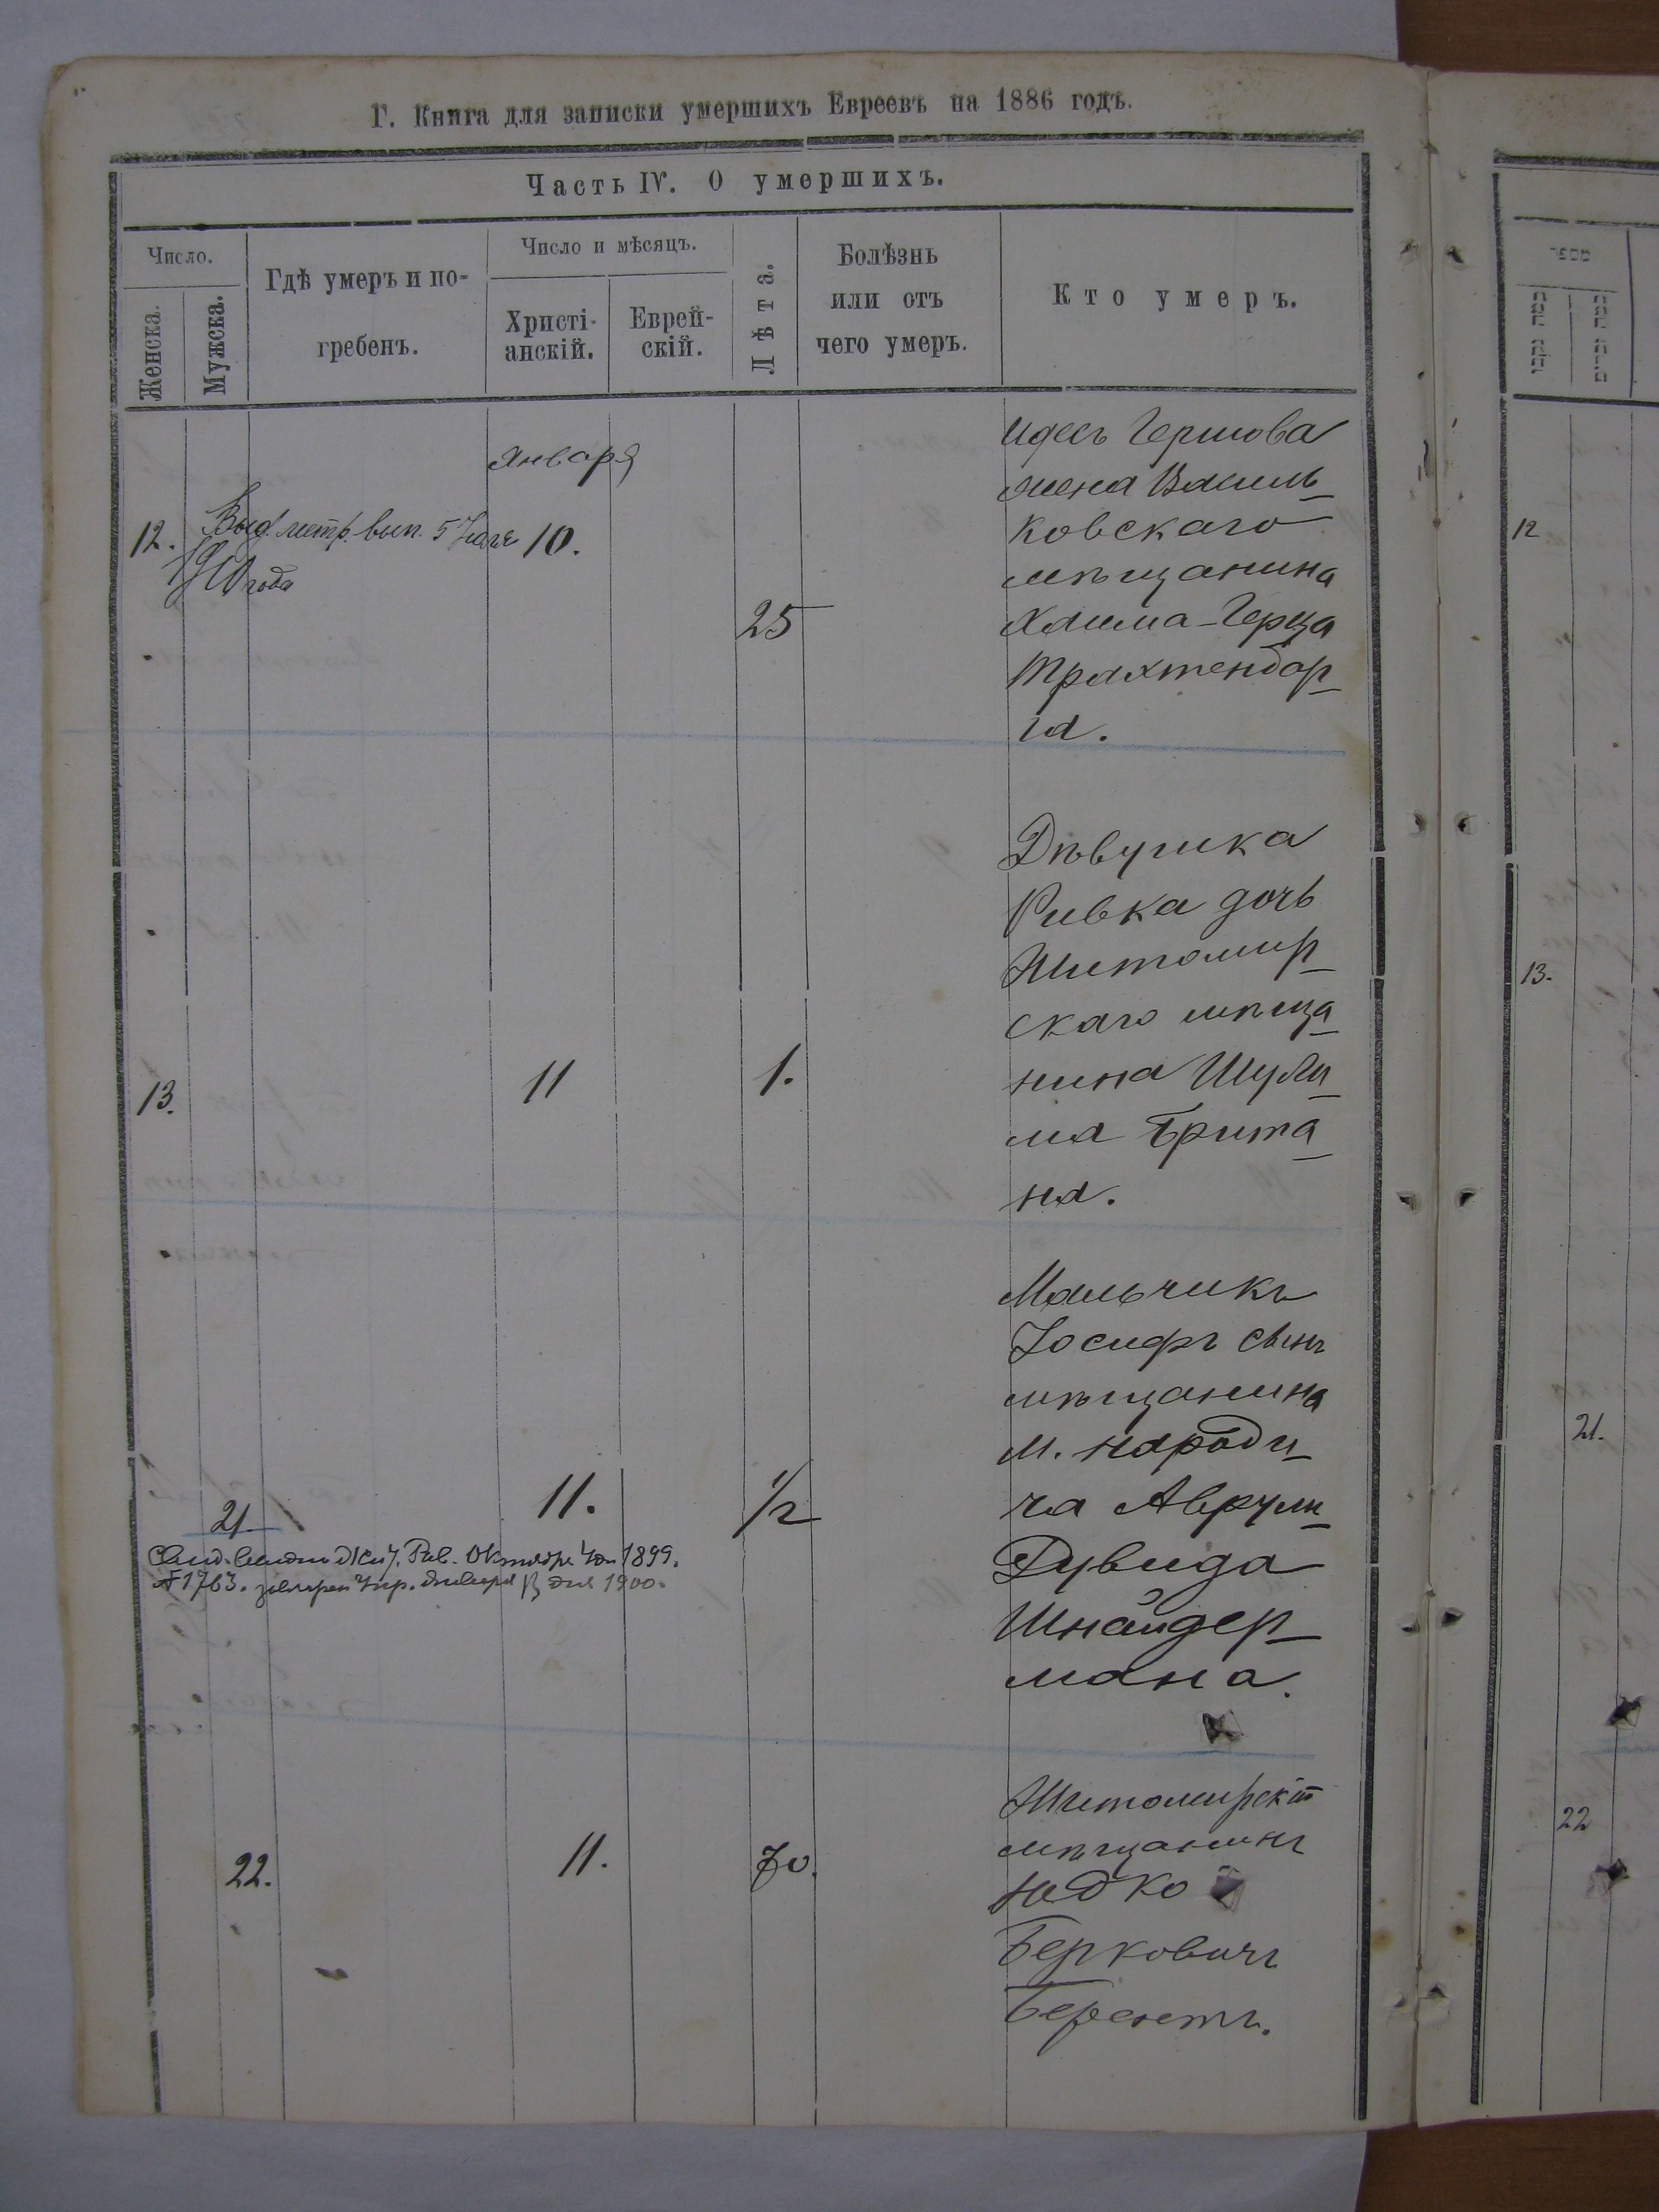 Г. Книга для записки умершихъ Евреевъ на 1886 годъ.
Часть IV. О умершихъ.
Число.
Женска.
Мужска.
Гдѣ умеръ и по-
гребенъ.
Число и мѣсяцъ.
Христі-
анскій.
Еврей-
скій.
Лѣта.
Болѣзнь
или отъ
чего умеръ.
Кто умеръ.
Января
12.
Выд. метр. вып. 5
года
10.
25
Идесъ Гершова
жена Василь-
ковскаго
мѣщанина
Хаима-Герца
Трахтенбар-
га.
13.
11
1.
Дѣвушка
Ривка дочь
Житомир-
скаго мѣща-
нина Шули-
ма Брита-
на.
21
11.
1/2
Мальчикъ
Іосифъ сынъ
мѣщанина
м. Народи-
ча Аврум-
Дувида
Шнайдер-
мана.
1899.
1763.
1900.
22.
11.
70.
Житомирскій
мѣщанинъ
Берковичъ
Берентъ.
מספר
12
13.
21.
22